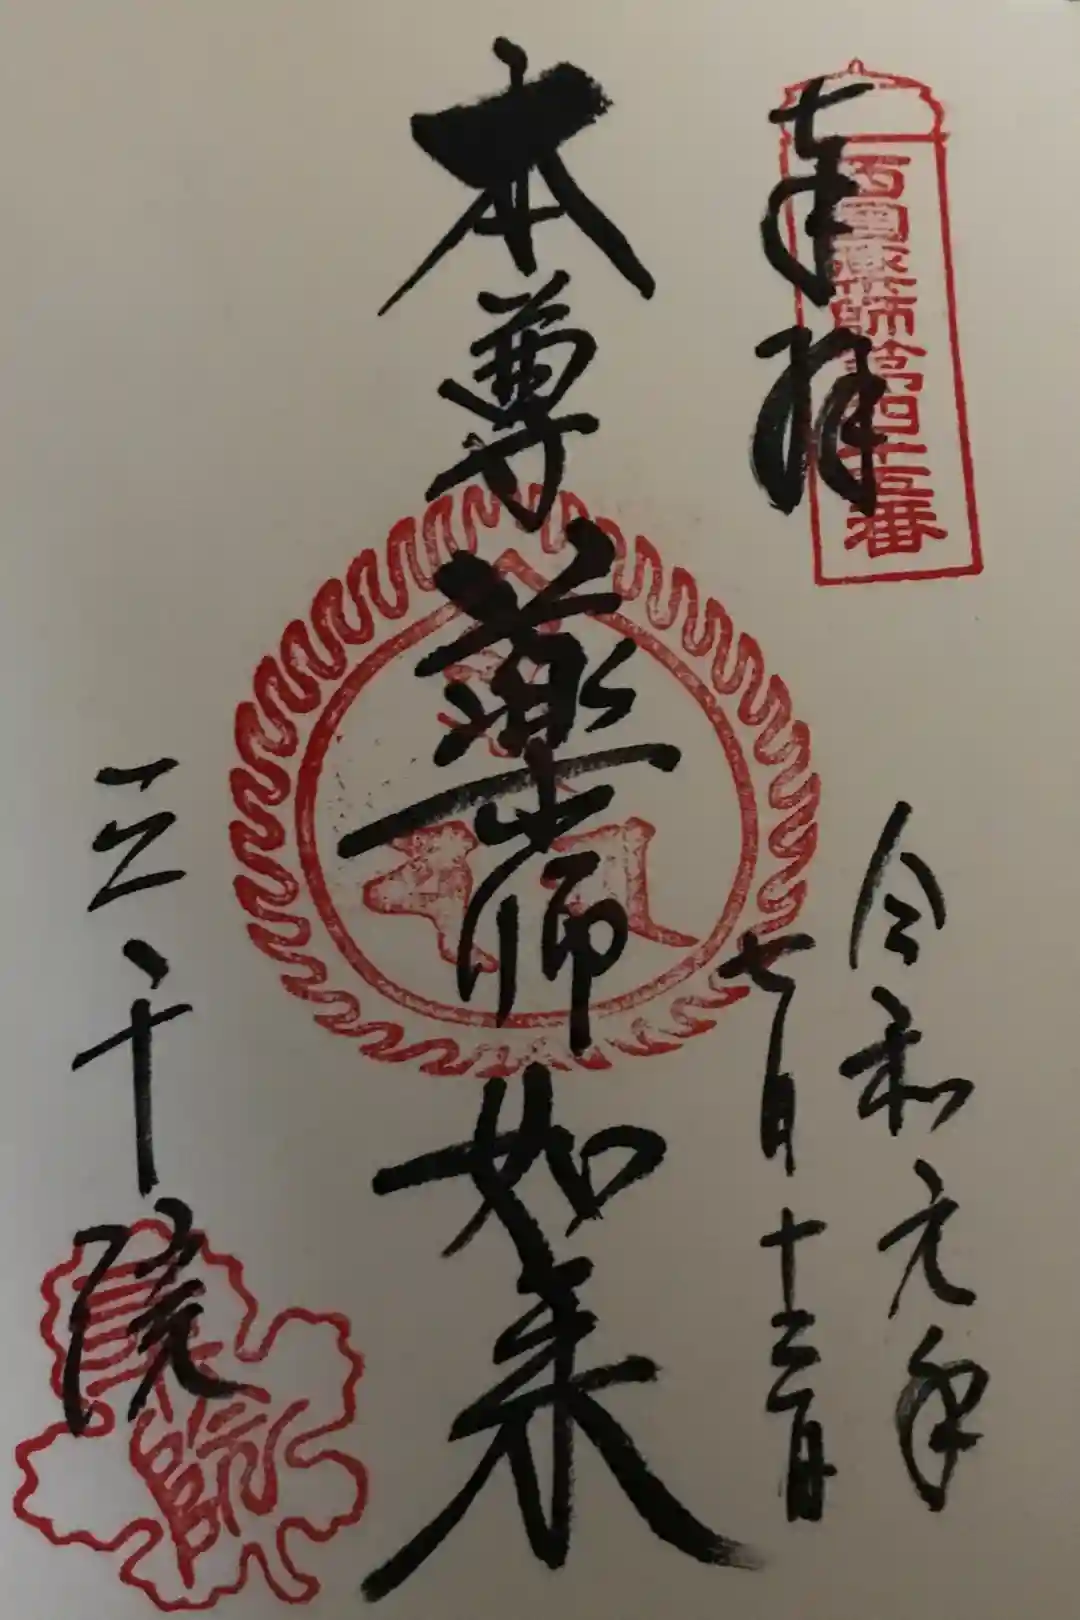 西国薬師第四十五番
奉拝
令和元年
七月十三日
本尊薬師如来
三千院